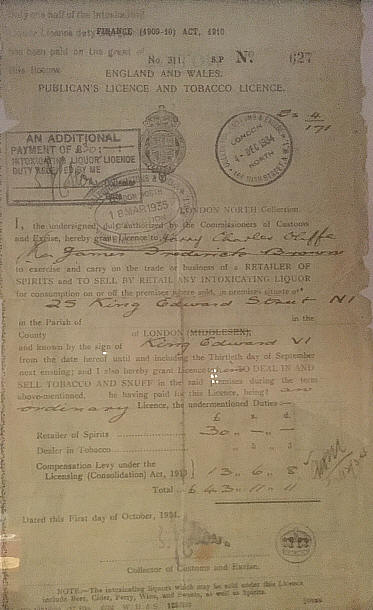 only one half of the Intoxicating
Liquor Licence duty
has been paid on the grant of
this licence
FINANCE (1909-10) ACT, 1910
No. 311. S.P No. 627
ENGLAND AND WALES.
PUBLICAN'S LICENCE AND TOBACCO LICENCE.
4
171
AN ADDITIONAL
PAYMENT OF
INTOXICATING LIQUOR LICENCE
DUTY RECEIVED BY ME
LONDON
1-DEC 1934
NORTH
LONDON NORTH
18 MAR 1935
LONDON NORTH Collection.
I, the undersigned, duly authorized by the Commissioners of Customs
and Excise, hereby grant Licence to Harry Charles
James Frederick Brown
to exercise and carry on the trade or business of a RETAILER OF
SPIRITS and TO SELL BY RETAIL ANY INTOXICATING LIQUOR
for consumption on or off the premises where sold, in premises situate at
25 King Edward Street N1
in the Parish of in the
County of LONDON (MIDDLESEX),
and known by the sign of King Edward VI
from the date hereof until and including the Thirtieth day of September
next ensuing; and I also hereby grant Licence TO DEAL IN AND
SELL TOBACCO AND SNUFF in the said premises during the term
above-mentioned, he having paid for this Licence, being an
ordinary Licence, the undermentioned Duties
Retailer of Spirits 30 " - " -
Dealer in Tobacco " 5 " 3
Compensation Levy under the
Licensing (Consolidation) Act, 1910 } 13 " 6 " 8
Total £ 43 " 11 " 11
Dated this First day of October, 1934.
Collector of Customs and Excise.
NOTE.—The intoxicating liquors which may be sold under this Licence
include Beer, Cider, Perry, Wine, and Sweets, as well as Spirits.